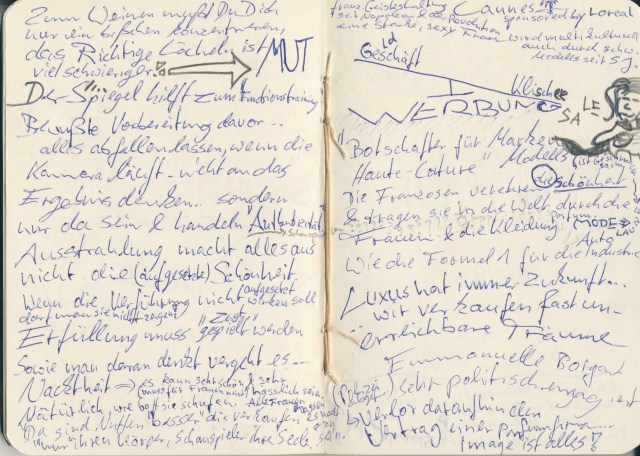 Zum Weinen mußt Du Dich
nur ein bißchen konzentrieren,
das Richtige Lächeln ist
viel schwieriger!? MUT
Der Spiegel hilft zum "Emotionstraining"
Bewußte Vorbereitung davor...
alles abfallen lassen, wenn die
Kamera läuft - nicht an das
Ergebnis denken... sondern
nur da sein & handeln "Authentizität"
Ausstrahlung macht alles aus
nicht die (aufgesetzte) Schönheit.
Wenn die Verführung nicht aufgesetzt wirken soll
darf man sie nicht zeigen
Erfüllung muss "gespielt" werden
Sowie man daran denkt vergeht es...
Nacktheit → es kann sehr schön & sehr hässlich sein.
Natürlich, wie Gott sie schuf
Da sind Nutten "besser" die verkaufen
nur ihren Körper, Schauspieler ihre Seele
franz. Geisteshaltung
seit Napoleon & der Revolution
eine starke, sexy Frau
Cannes
sponsored by Loreal
wird multikulturell
auch durch
Models seit 5 J.
Geschäft
Klischee
WERBUNG
SALE
"Botschafter für Marken
Haute-Couture" Models
die Schönheit
Die Franzosen verehren
& tragen sie in die Welt durch die
Frauen & die Kleidung Parfum.
(MODE
Auto
Wie die Formel 1 für die Industrie
Luxus hat immer Zukunft...
wir verkaufen fast un-
erreichbare Träume
Emmanuelle
sehr politisch engagiert
↳ verlor daraufhin den
Vertrag einer Parfumfirma...
Image ist alles!?